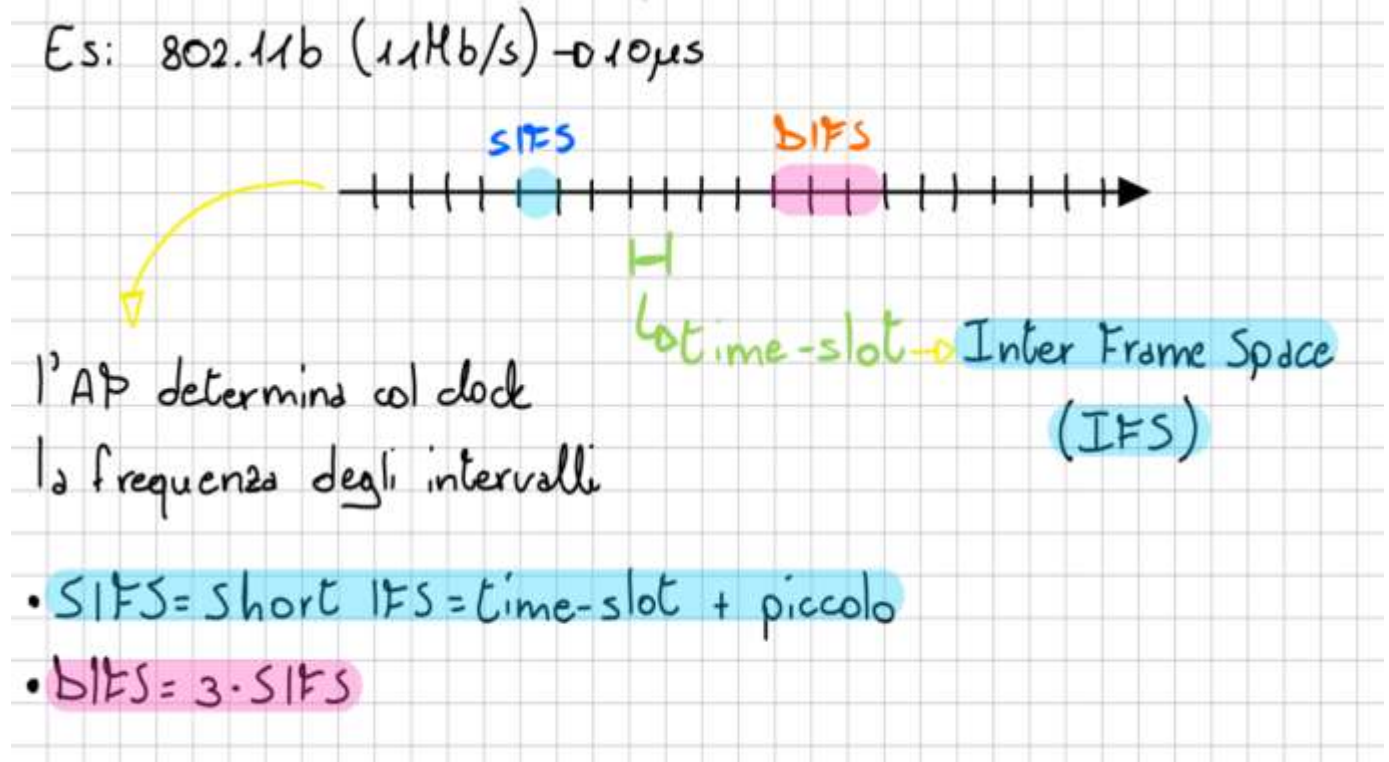 Es: 802.11b (11Mb/s) → 10μs
SIFS
DIFS
time-slot → Inter Frame Space
(IFS)
l'AP determina col clock
la frequenza degli intervalli
• SIFS = Short IFS = time-slot + piccolo
• DIFS = 3·SIFS